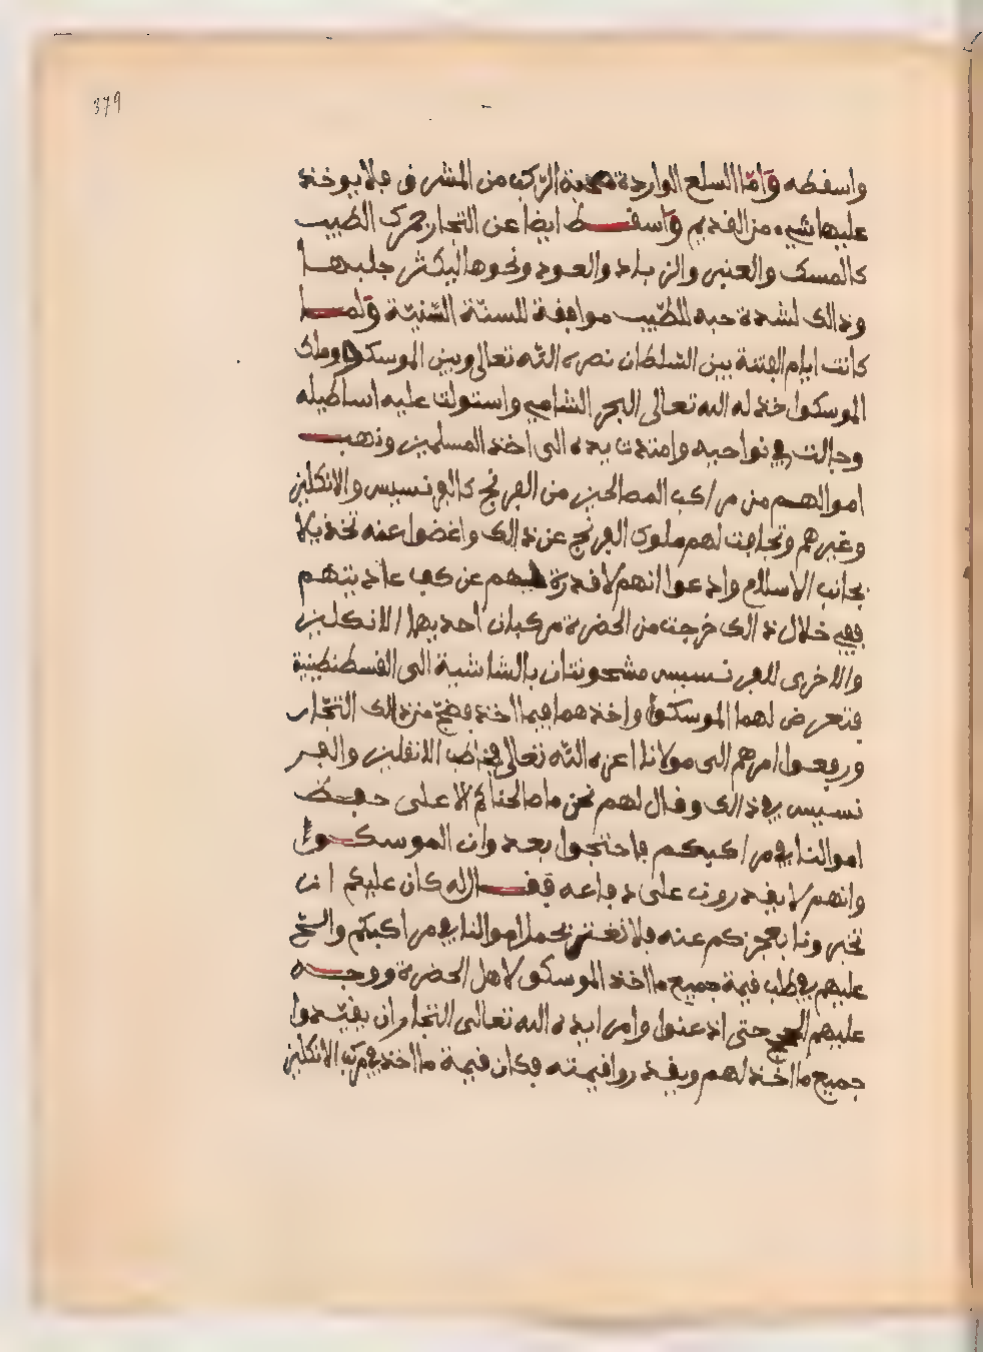 379
واسقطه وَامّا السلع الواردة صحبة الرّكب من المشرق فلا يوخذ
عليها شيء من القديم وَاسقط ايضا عن التجار جمرك الطيب
كالمسك والعنبر والزباد والعود ونحوها ليكثر جلبها
وذالك لشدة حبه للطّيب موافقة للسنّة السّنيّة وَلما
كانت ايام الفتنة بين السّلطان نصره اللّه تعالى وبين الموسكوا وملك
الموسكوا خذله الله تعالى البحر الشامي واستولت عليه اساطيله
وجالت في نواحيه وامتدت يده الى اخذ المسلمين ونهب
اموالهم من مراكب المصالحين من الفرنج كالفرنسيس والانكليز
وغيرهم وتجاجت لهم ملوك الفرنج عن ذالك واغضوا عنه تخذيلا
بجانب الاسلام وادعوا انهم لا قدرة لهم عن كف عاديتهم
ففي خلال ذالك خرجت من الحضرة مركبان احديهما للانكليز
والاخرى للفرنسيس مشحونتان بالشاشية الى القسطنطينية
فتعرض لهما الموسكوا واخذهما فيما اخذ فضجّ من ذالك التجّار
ورفعوا امرهم الى مولانا اعزه اللّه تعالى فخاطب الانقليز والفر
نسيس في ذالك وقال لهم نحن ما صالحناكم الا على حفظ
اموالنا في مراكبكم فاحتجوا بعدوان الموسكوا
وانهم لا يقدرون على دفاعه فقال له كان عليكم ان
تخبرونا بعجزكم عنه فلا نغتر بحمل اموالنا في مراكبكم والحّ
عليهم في طلب قيمة جميع ما اخذ الموسكو لاهل الحضرة ووجه
عليهم الحجج حتى اذعنوا وامر ايده الله تعالى التجار ان يقيّدوا
جميع ما اخذ لهم ويقدروا قيمته فكان قيمة ما اخذ في مركب الانكليز